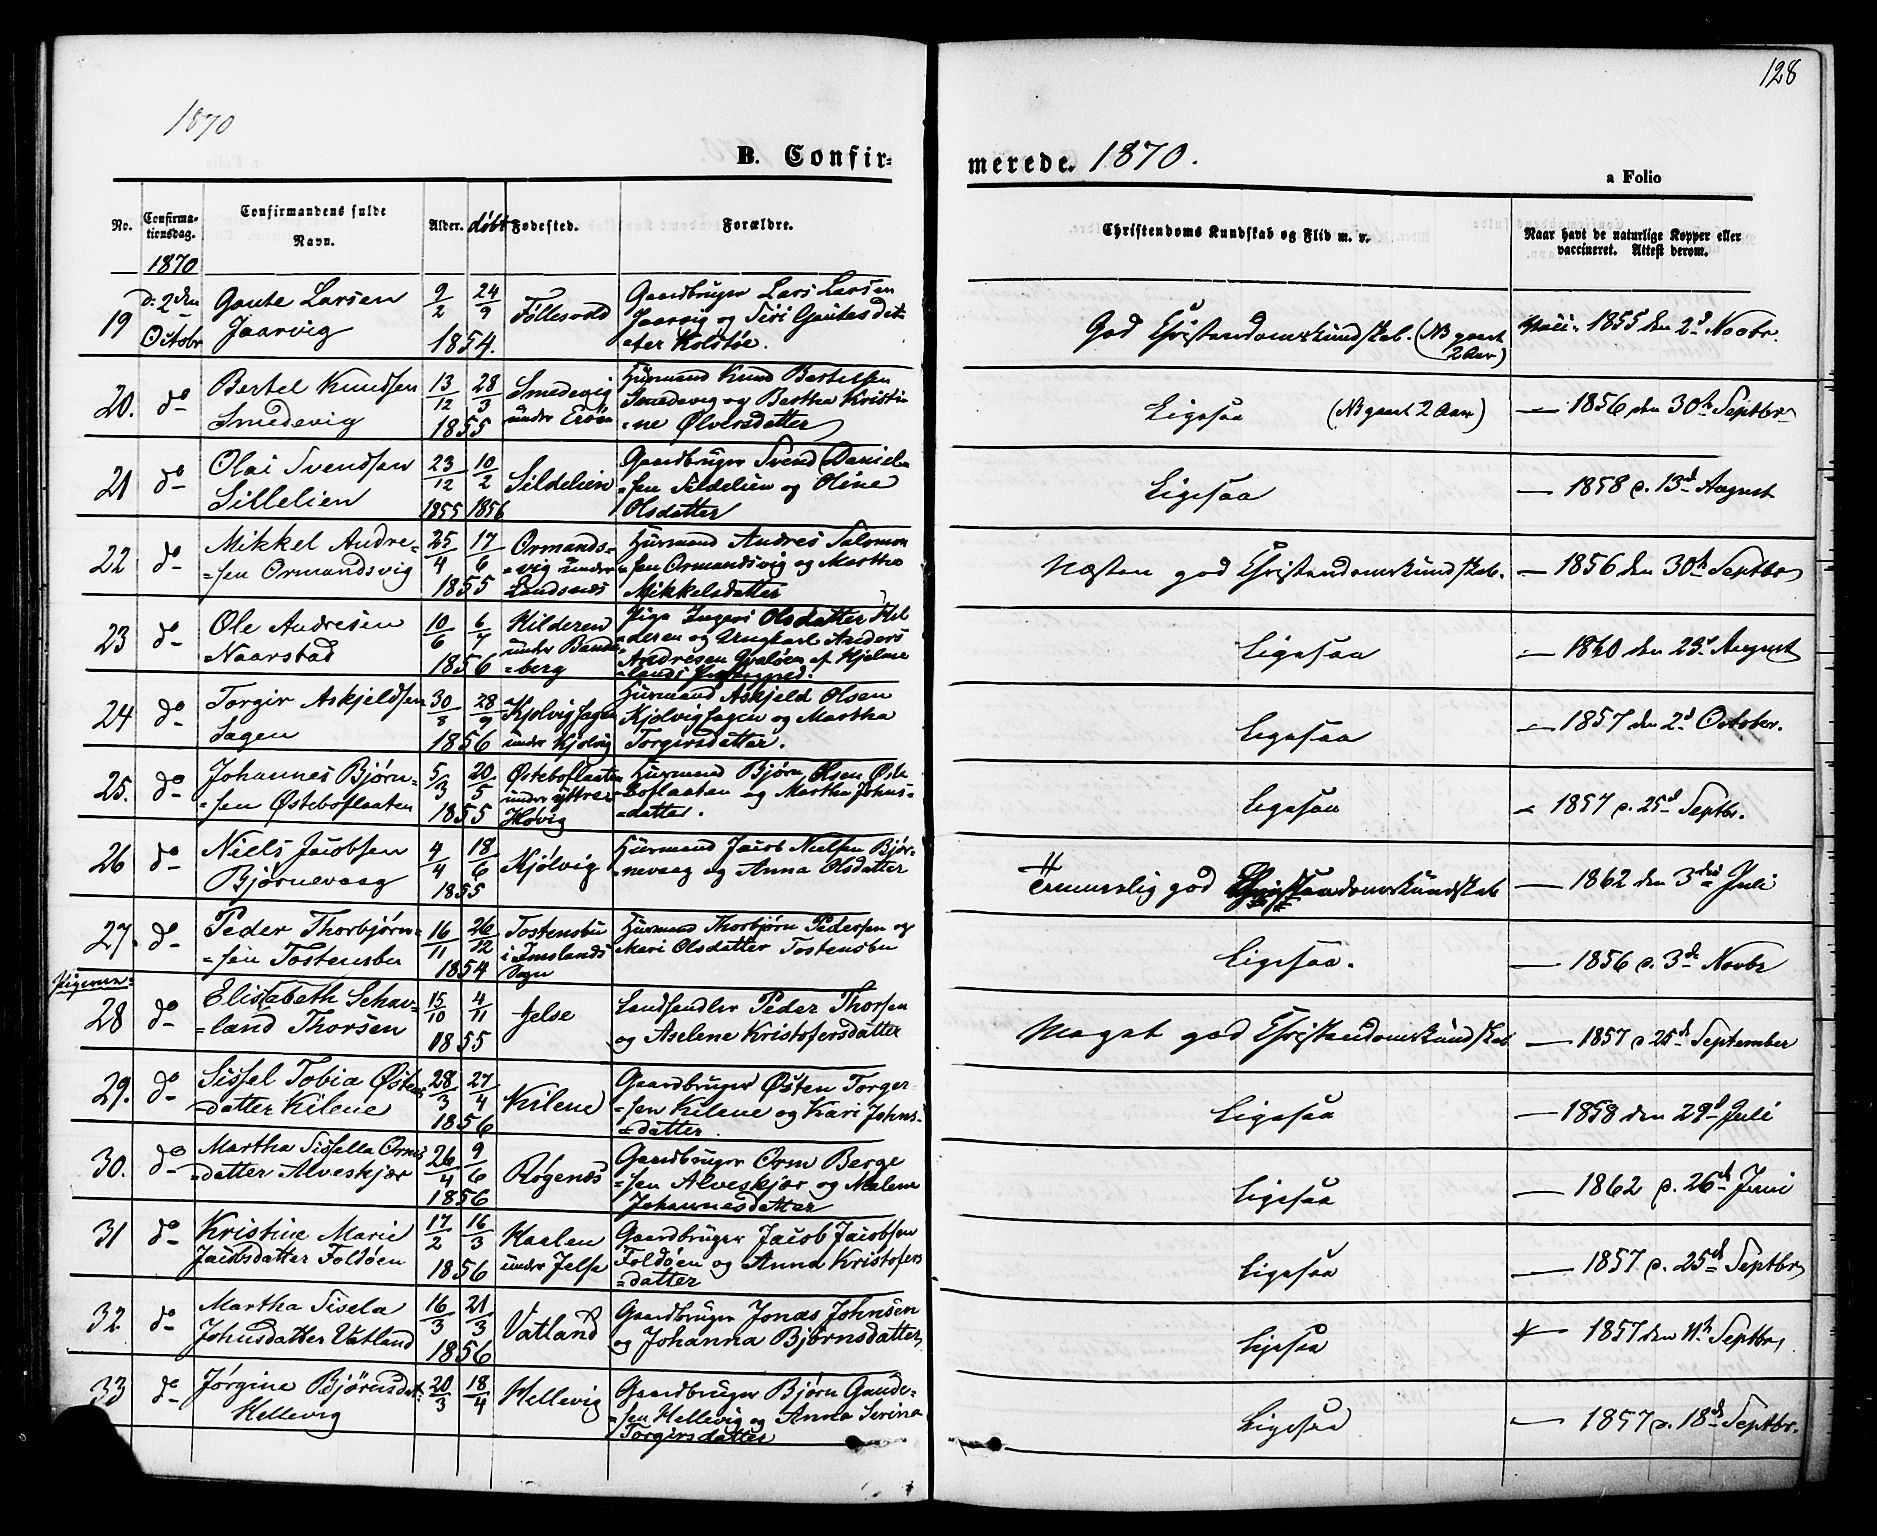 128
1870
B. Confir=
merede. 1870.
a Folio
No.
Confirma-
tionsdag.
Confirmandens fulde
Navn.
Alder.
døbt
Fødested.
Forældre.
Christendoms Kundskab og Flid m. v.
Naar havt de naturlige Kopper eller
vaccineret. Attest derom.
1870
19
d: 2den
Octobr
Gaute Larsen
Jaarvig
9/2 24/9
1854.
Follesvold
Gaardbruger Lars Larsen
Jaarvig og Siri Gautesdat-
ter Kolstøe.
God Christendomskundskab. (NB gaaet
2 Aar)
1855 den 2d Novbr.
20.
do
Bertel Knudsen
Smedevig
13/12 28/3
1855
Smedevig
under Erøen
Huusmand Knud Bertelsen
Smedevig og Bertha Kristi
=ne Ølversdatter
Ligesaa (NB gaaet 2 Aar)
— 1856 den 30th Septbr
21
do
Olai Svendsen
Sillelien
23/12 10/2
1855 1856
Sildelien
Gaardbruger Svend Daniel
=sen Sildelien og Oline
Olsdatter
Ligesaa
— 1858 d. 13d August
22
do
Mikkel Andre=
=sen Ormandsvig
25/4 17/6
1855
Ormands=
=vig under
Landsnæs
Huusmand Andres Salomon
=sen Ormandsvig og Martha
Mikkelsdatter
Næsten god Christendomskundskab.
— 1856 den 30th Septbr
23
do
Ole Andresen
Naarstad
10/6 6/7
1856
Hilderen
under Bande
=berg
Pige Ingeri Olsdatter Hil
=deren og Ungkarl Anders
Andresen Qvaløen af Hjelme
=lands Præstegjed.
Ligesaa
— 1860 den 23d August
24
do
Torgir Askjeldsen
Sagen
30/8 28/9
1856
Kjolvigsagen
under Kjolvig
Huusmand Askjeld Olsen
Kjolvigsagen og Martha
Torgirsdatter.
Ligesaa
— 1857 den 2d October.
25.
do
Johannes Bjørn=
=sen Østeboflaaten
5/3 20/5
1855
Østeboflaaten
under yttre
Høvig
Huusmand Bjørn Olsen Øste
boflaaten og Martha Johns=
=datter.
Ligesaa
1857 d. 25d Septbr.
26
do
Niels Jacobsen
Bjørnevaag
4/4 18/6
1855
Kjølvig
Huusmand Jacob Nielsen Bjør=
=nevaag og Anna Olsdatter
Temmelig god Christendomskundskab
— 1862 den 3die Juli
27.
do
Peder Thorbjørn=
=sen Tostensbu
16/11 26/12
1854
Tostensbu
i Imslands
Sogn
Huusmand Thorbjørn Pedersen og
Mari Olsdatter Tostensbu
Ligesaa.
— 1856 d. 3de Novbr
Pigerne:
28
do
Elisabeth Schav=
=land Thorsen
15/10 4/11
1855
Jelse
Landhandler Peder Thorsen
og Aselene Kristofersdatter
Meget god Christendomskundskab
— 1857 d 25de September
29.
do
Sissel Tobia Østens
=datter Kilene
28/3 27/4
1856
Kilene
Gaardbruger Østen Torger=
=sen Kilene og Kari Johns=
=datter.
Ligesaa
— 1858 den 29d Juli
30.
do
Martha Sissella Orms
=datter Alveskjær
26/4 9/6
1856
Røgenæs
Gaardbruger Orm Berge
=sen Alveskjær og Malene
Johannesdatter
Ligesaa
— 1862 d. 26d Juni
31
do
Kristine Marie
Jacobsdatter Foldøen
17/2 16/3
1856
Kaalen
under Jelse
Gaardbruger Jacob Jacobsen
Foldøen og Anna Kristofers
=datter
Ligesaa
— 1857 d. 25de Septbr
32
do
Martha Sisela
Johnsdatter Vatland
16/3 21/3
1856
Vatland
Gaardbruger Jonas Johnsen
og Johanna Bjørnsdatter
Ligesaa
1857 den 11th Septbr
33
do
Jørgine Bjørnsdat.
Hellevig
20/3 18/4
Hellevig
Gaardbruger Bjørn Gaude=
=sen Hellevig og Anna Serina
Torgirsdatter
Ligesaa
— 1857 d. 18de Septbr.